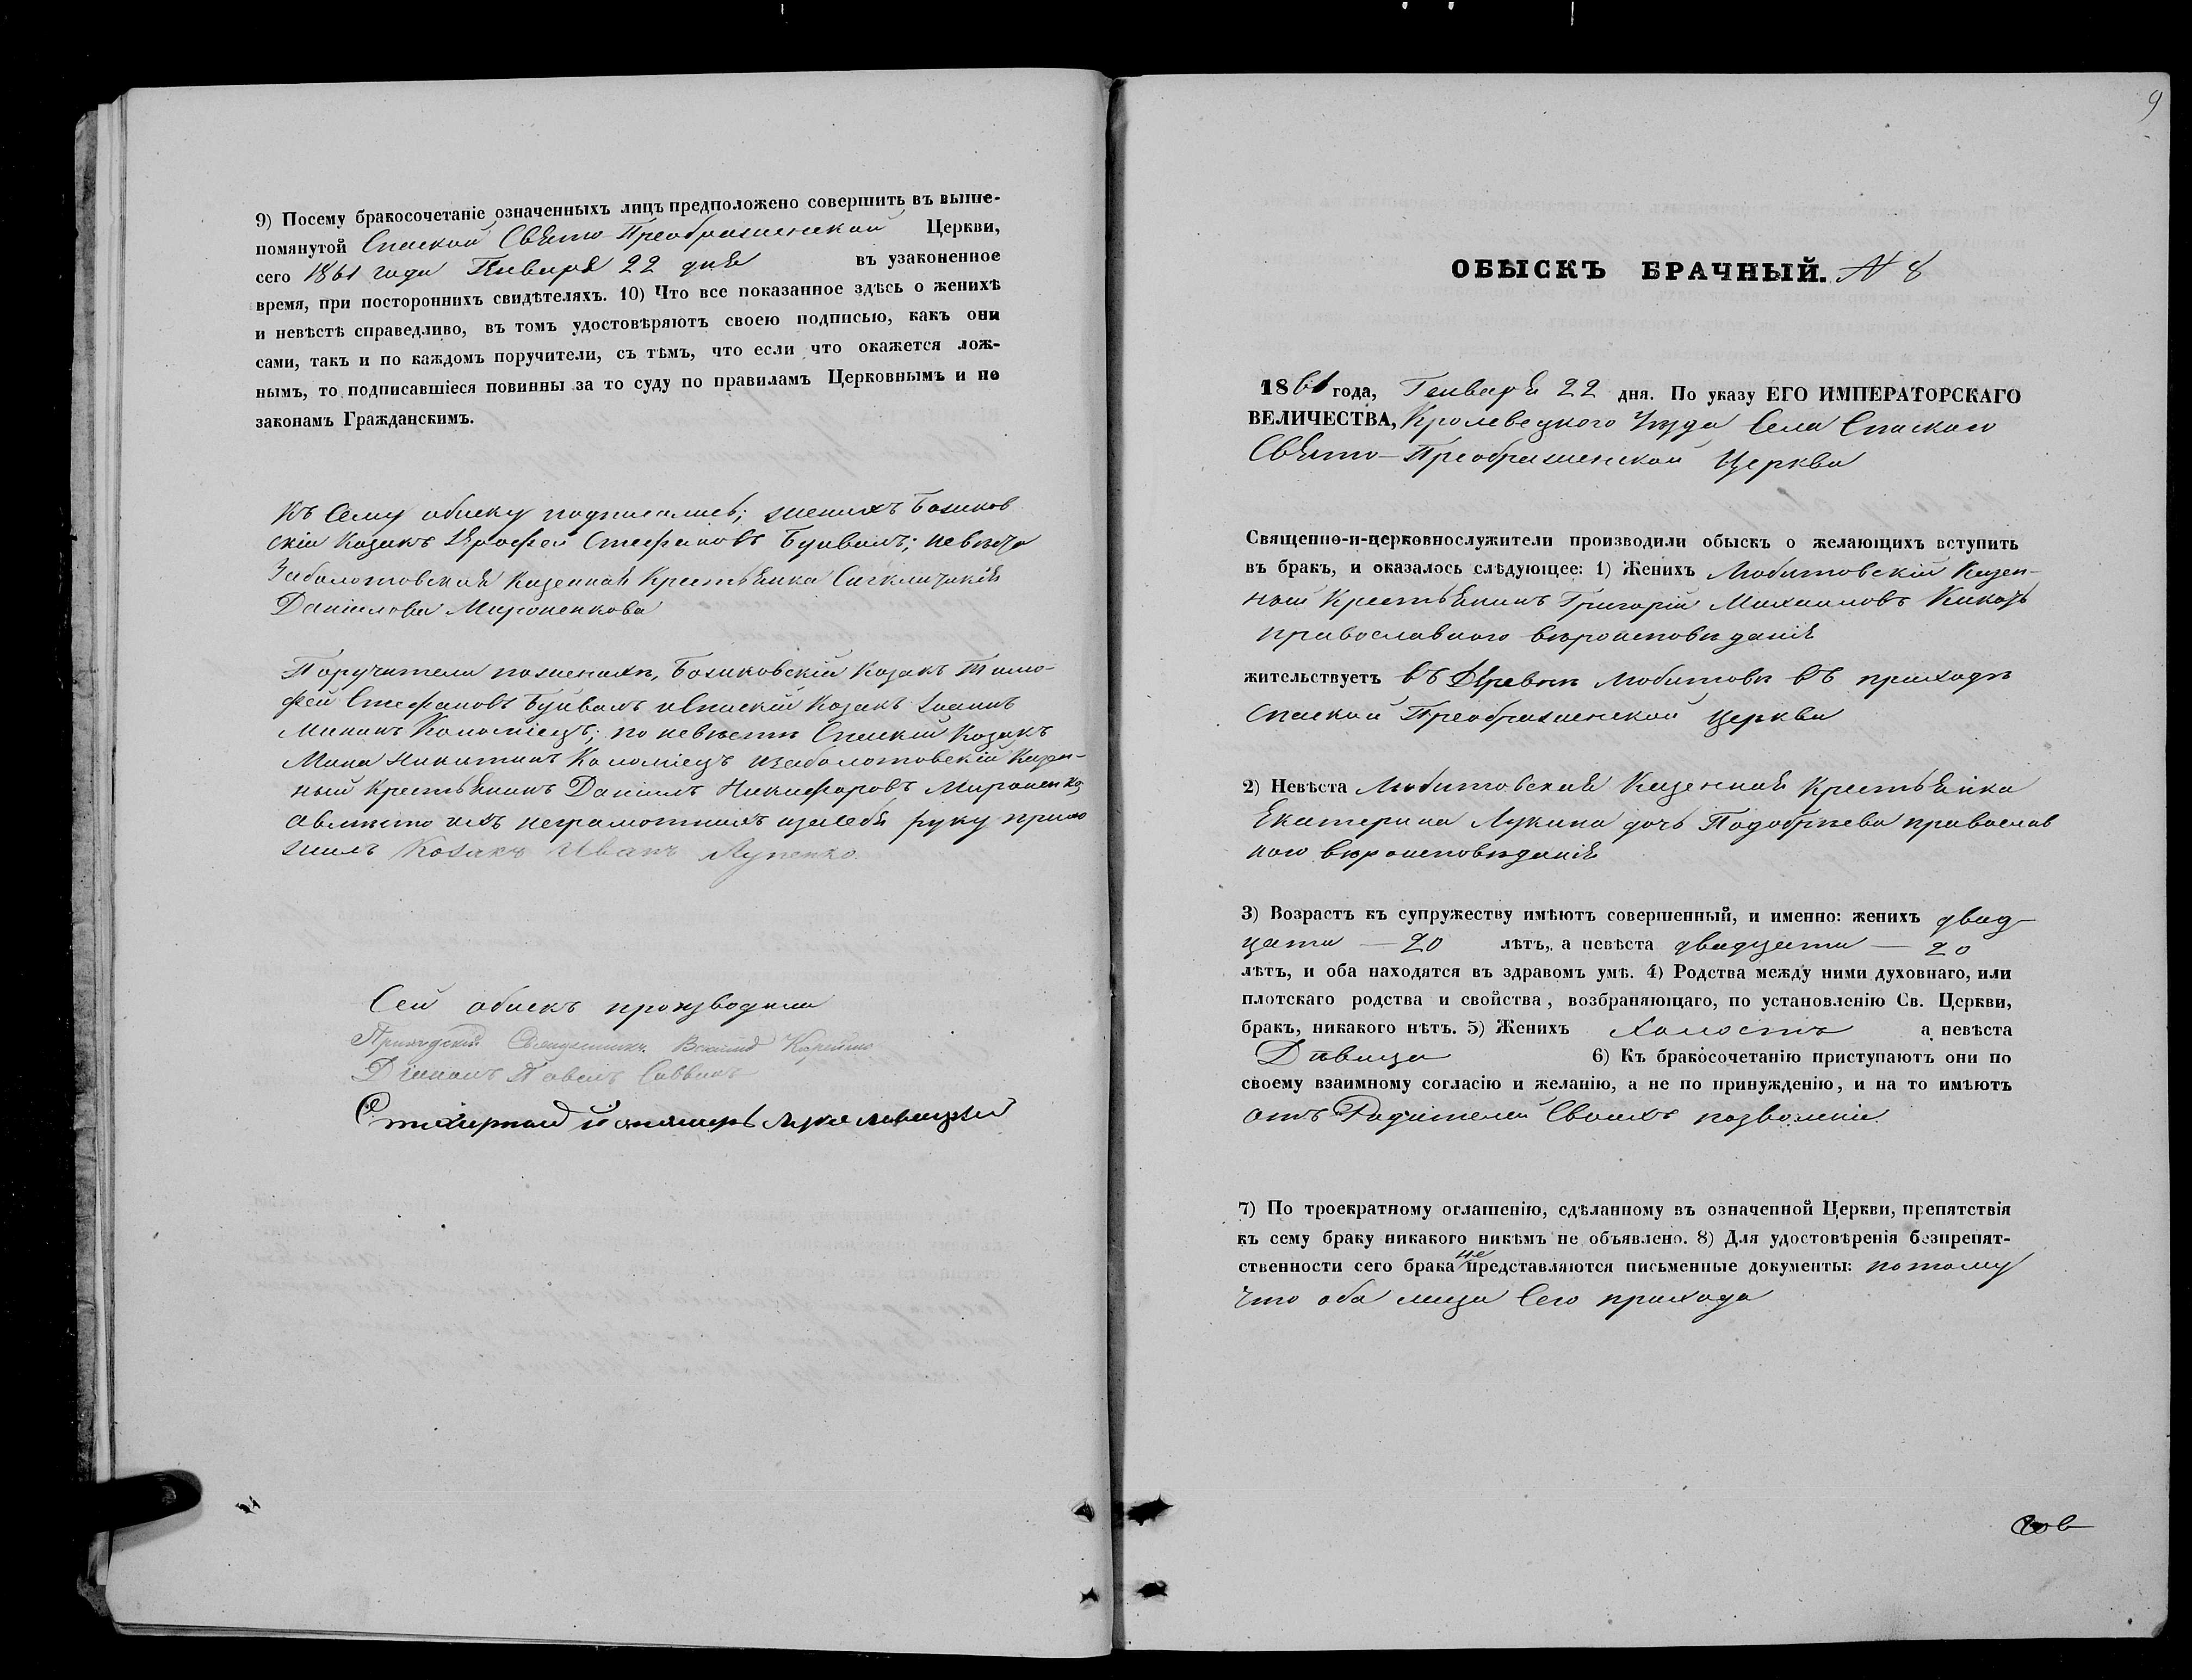 9) Посему бракосочетаніе означенныхъ лицъ предположено совершить въ выше-
помянутой Спаской Свято-Преображенской Церкви,
сего 1861 года Генваря 22 дня въ узаконенное
время, при постороннихъ свидѣтеляхъ. 10) Что все показанное здѣсь о женихѣ
и невѣстѣ справедливо, въ томъ удостовѣряютъ своею подписью, какъ они
сами, такъ и по каждомъ поручители, съ тѣмъ, что если что окажется лож-
нымъ, то подписавшіеся повинны за то суду по правиламъ Церковнымъ и по
законамъ Гражданскимъ.
Къ Сему обыску подписались; женихъ Божков
скій Козакъ Ерофей Стефановъ Буйвалъ; невѣста
Заболотовская Казенная Крестьянка
Даніилова Мироненкова
Поручители по женихѣ, Божковскій Козакъ Тимо-
фей Стефановъ Буйвалъ и Спаскій Козакъ Іоаннъ
Мининъ Коломіецъ; по невѣсте Спаскій Козакъ
Мина Никитинъ Коломіецъ и Заболотовскій Казен-
ный Крестьянинъ Даніилъ Никифоровъ Мироненко,
а вместо ихъ неграмотныхъ и за себя руку прило
жилъ Козакъ Иванъ Лупенко
Сей обыскъ производили
Приходскій Священникъ
Діаконъ Павелъ Саввичъ
Стихарный пономарь Лука
9
ОБЫСКЪ БРАЧНЫЙ. N 8
1861 года, Генваря 22 дня. По указу ЕГО ИМПЕРАТОРСКАГО
ВЕЛИЧЕСТВА, Кролевецкого Уезда Села Спаского
Свято-Преображенской Церкви
Священно-и-церковнослужители производили обыскъ о желающихъ вступить
въ бракъ, и оказалось слѣдующее: 1) Женихъ Любитовскій Казен-
ный Крестьянинъ Григорій Михаиловъ Кикоть
православного вѣроисповѣданія
жительствуетъ въ Деревнѣ Любитовѣ въ приходѣ
Спаской Преображенской Церкви
2) Невѣста Любитовская Казенная Крестьянка
Екатерина Лукина дочь Подобрѣева православ
ного вѣроисповѣданія
3) Возрастъ къ супружеству имѣютъ совершенный, и именно: женихъ двад-
цати — 20 лѣтъ, а невѣста двадцати — 20
лѣтъ, и оба находятся въ здравомъ умѣ. 4) Родства между ними духовнаго, или
плотскаго родства и свойства, возбраняющаго, по установленію Св. Церкви,
бракъ, никакого нѣтъ. 5) Женихъ Холостъ а невѣста
Дѣвица 6) Къ бракосочетанію приступаютъ они по
своему взаимному согласію и желанію, а не по принужденію, и на то имѣютъ
отъ Родителей Своихъ позволеніе
7) По троекратному оглашенію, сдѣланному въ означенной Церкви, препятствія
къ сему браку никакого никѣмъ не объявлено. 8) Для удостовѣренія безпрепят-
ственности сего брака не представляются письменные документы: потому
что оба лица Сего прихода